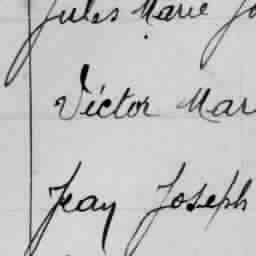 Jules Marie Jo
Victor Mar
Jean Joseph